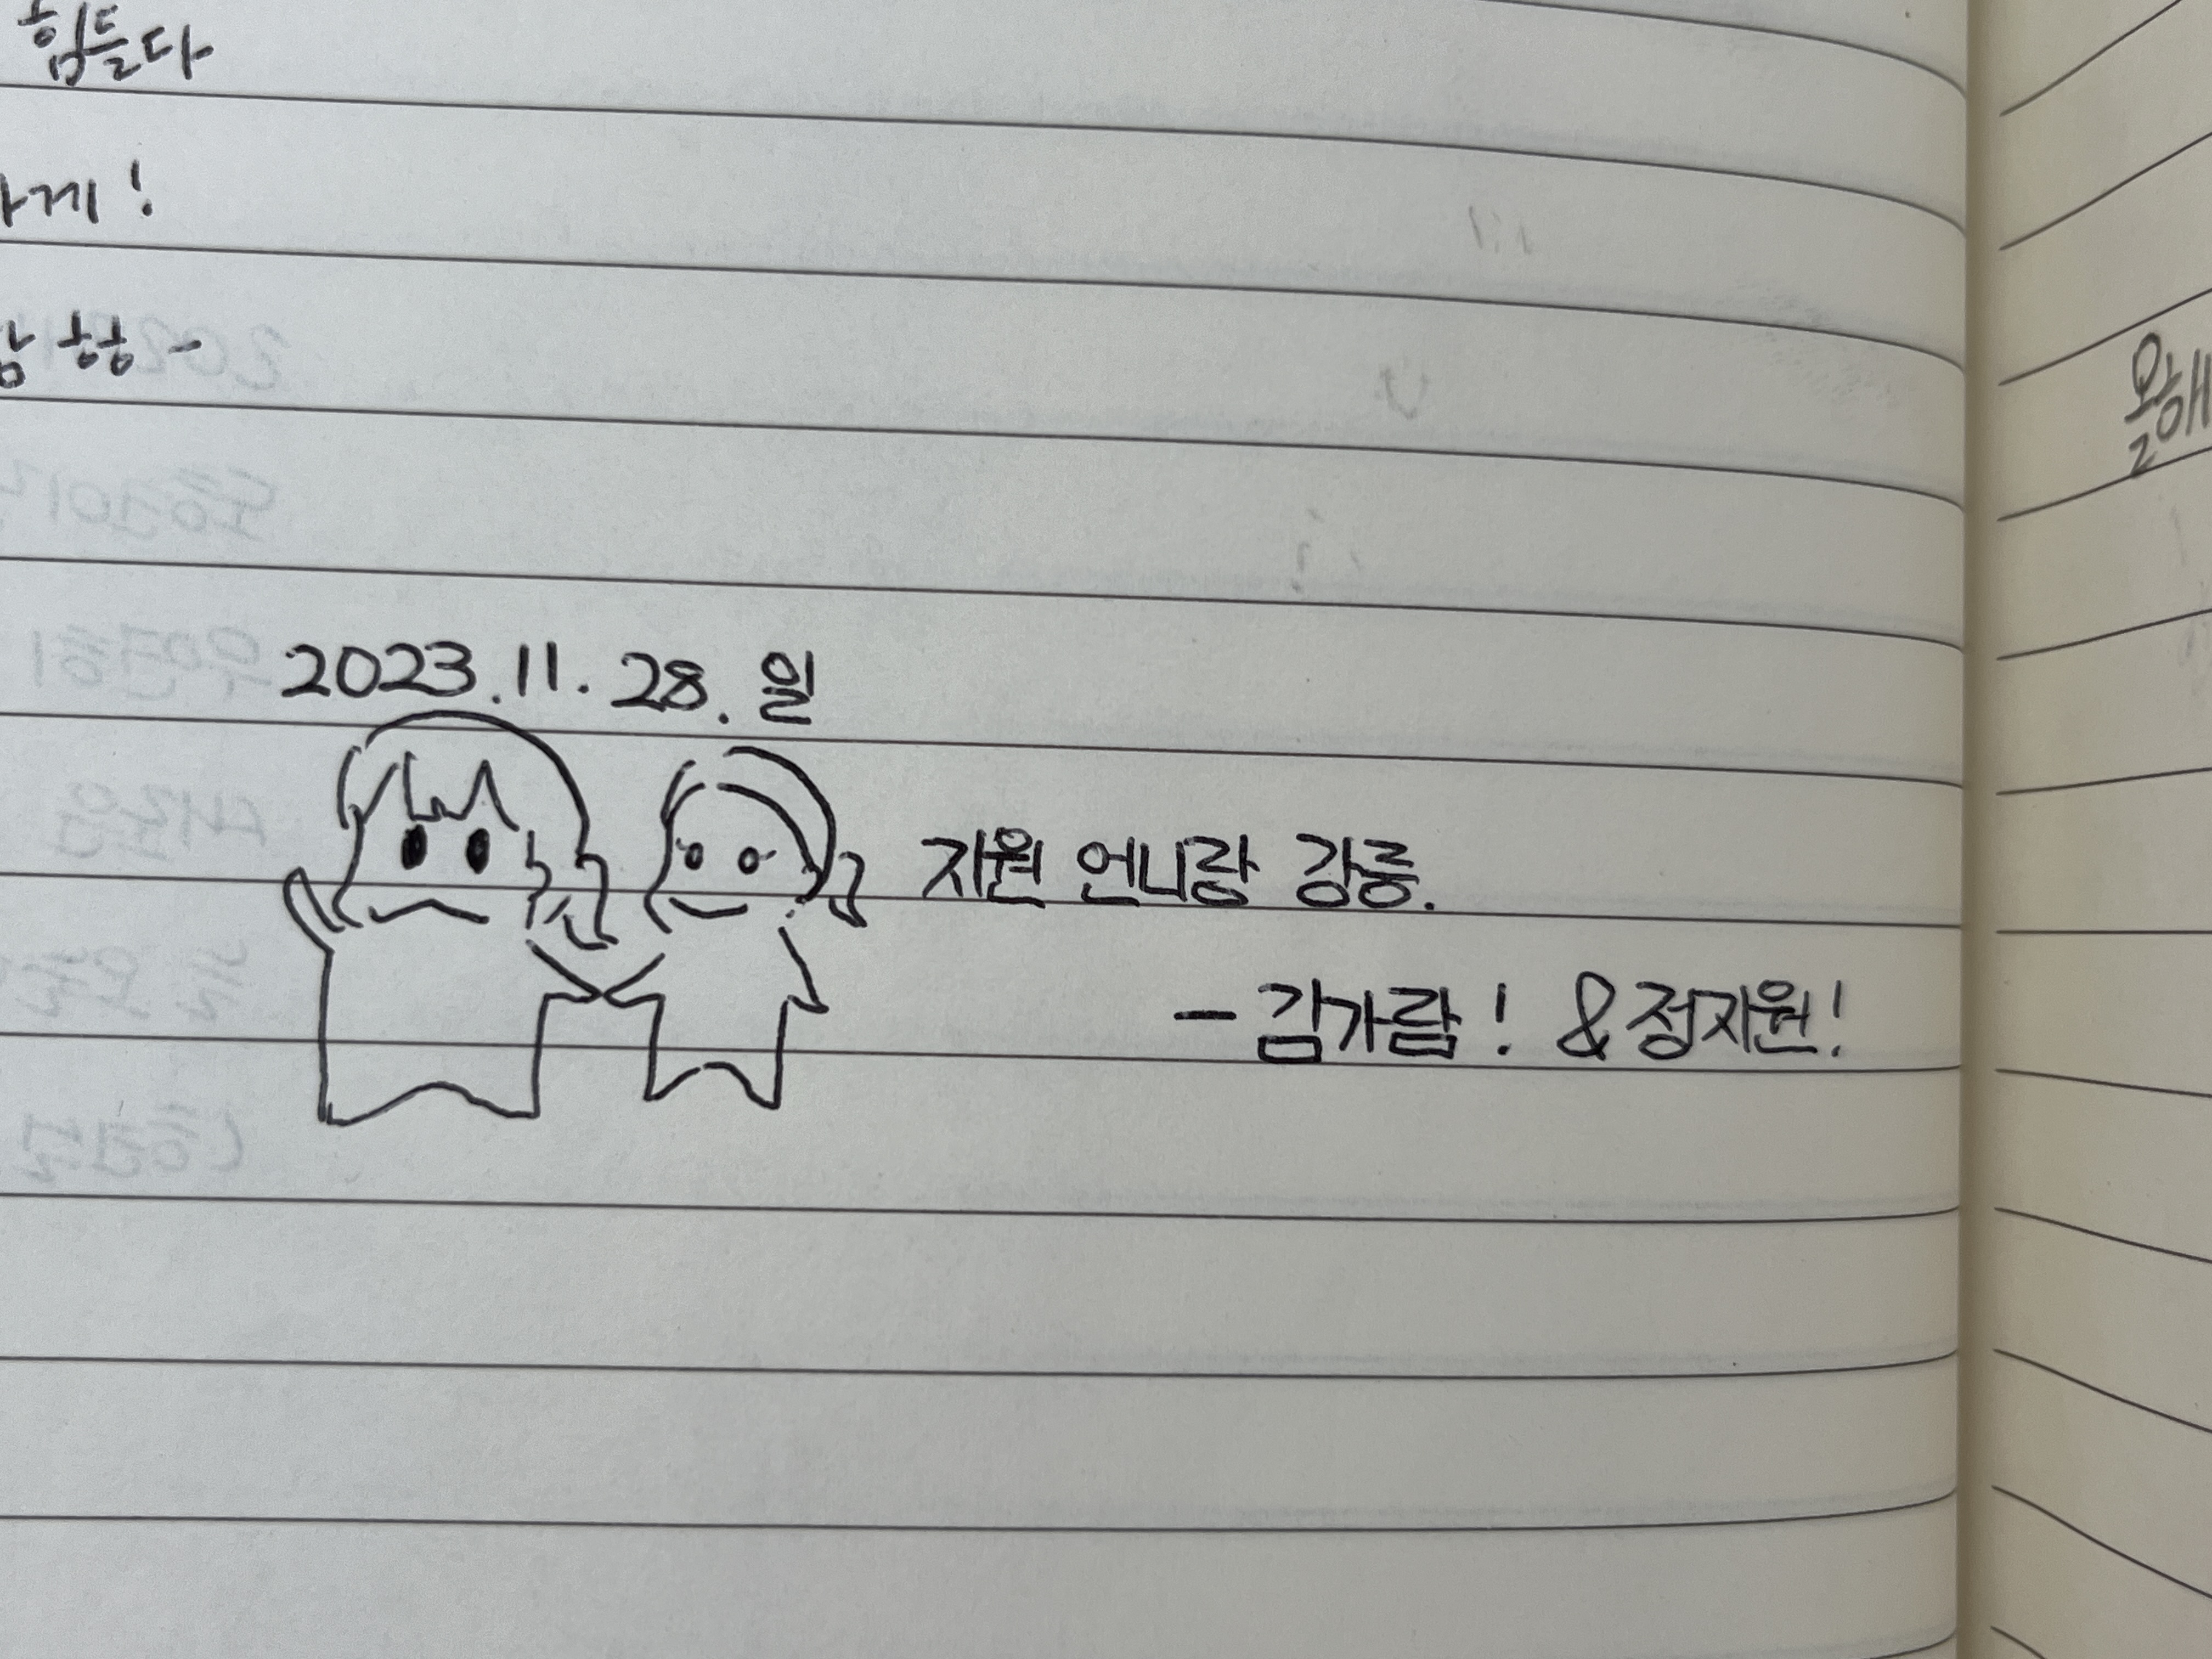 힘들다
게!
2023.11.28.일
지원 언니랑 강릉.
- 김가람! & 정지원!